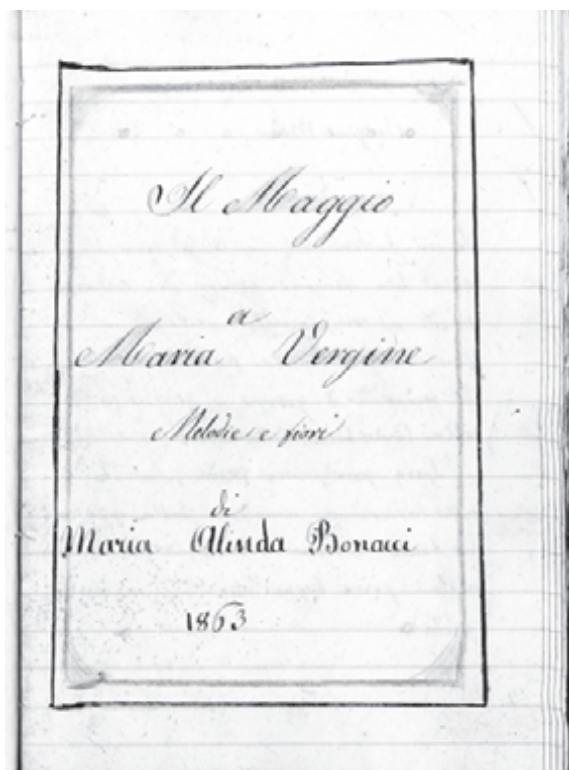 Il Maggio
a
Maria Vergine
Melodie e fiori
di
Maria Alinda Bonacci
1863